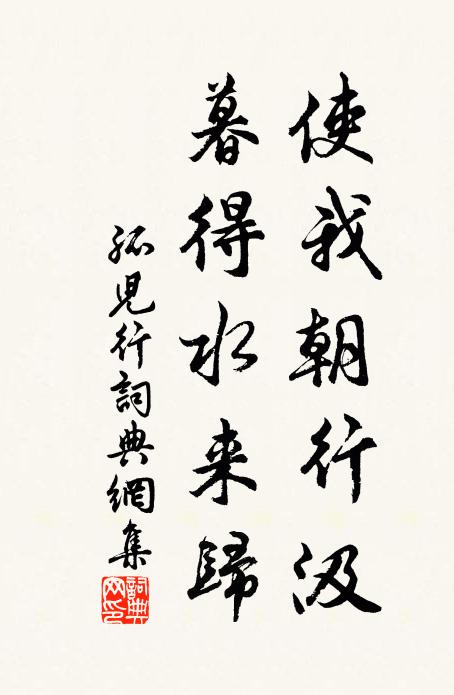 使我朝行汲
暮得水来歸
孤児行詞典網集
詞典网印